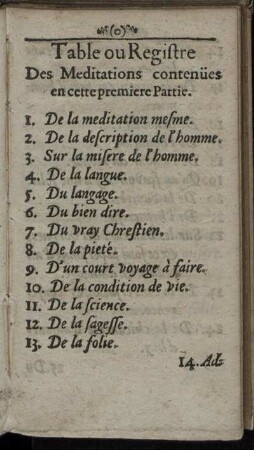 (0)
Table ou Regiſtre
Des Meditations contenües
en cette premiere Partie.
1. De la meditation meſme.
2. De la deſcription de l'homme.
3. Sur la miſere de l'homme.
4. De la langue.
5. Du langage.
6. Du bien dire.
7. Du vray Chreſtien.
8. De la pieté.
9. D'un court voyage à faire.
10. De la condition de vie.
11. De la ſcience.
12. De la ſageſſe.
13. De la folie.
14. Ad-